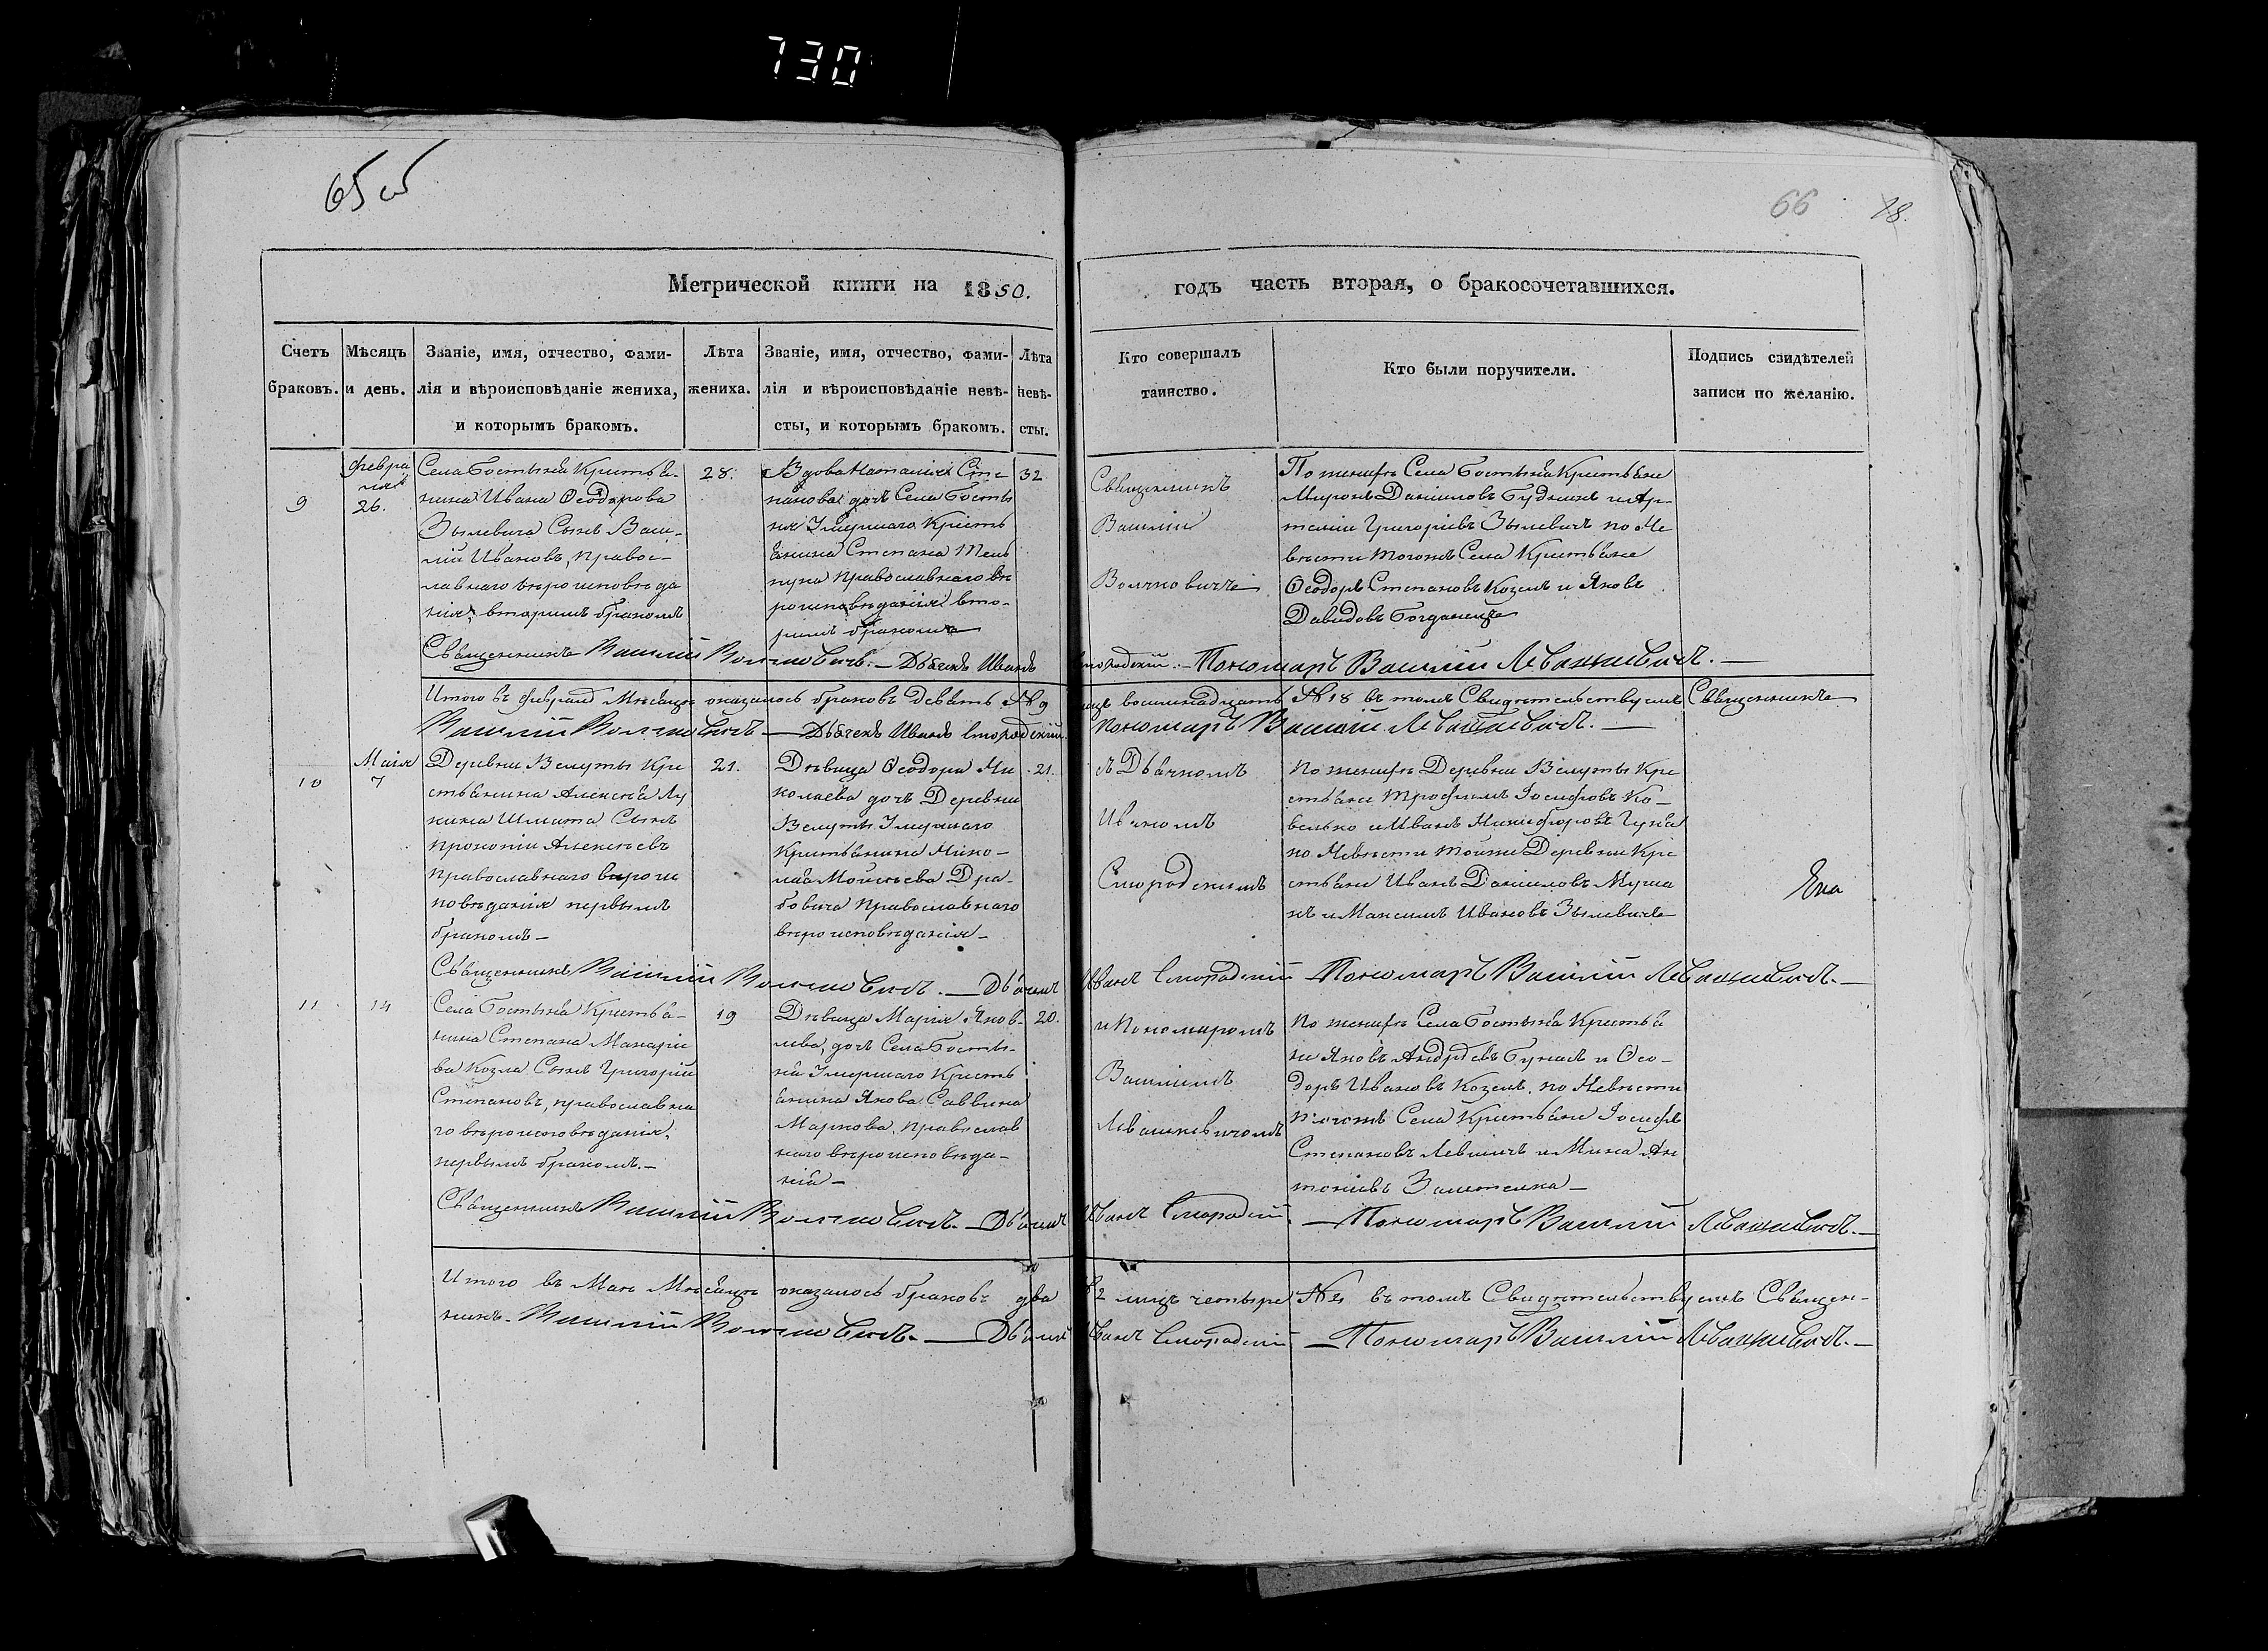 730
65об
66
18.
Метрической книги на 1850.
годъ часть вторая, о бракосочетавшихся.
Счетъ браковъ.
Мѣсяцъ и день.
Званіе, имя, отчество, фами-
лія и вѣроисповѣданіе жениха,
и которымъ бракомъ.
Лѣта
жениха.
Званіе, имя, отчество, фами-
лія и вѣроисповѣданіе невѣ-
сты, и которымъ бракомъ.
Лѣта
невѣ-
сты.
Кто совершалъ
таинство.
Кто были поручители.
Подпись свидѣтелей
записи по желанію.
9
Февра
ля
26.
Села Гостыня Крестья-
нина Ивана Ѳеодорова
Зылевича Сынъ Васи-
лій Ивановъ, правос-
лавнаго вѣроисповѣда
нія, вторымъ бракомъ
28.
Вдова Наталія Сте
панова дочь Села Госты
ня Умершаго Кресть
янина Степана
православнаго вѣ
роисповѣданія вто-
рымъ бракомъ
32
Священникъ
Василій
Волчковичъ
По женихѣ Села Гостыня Крестьяне
Миронъ Даниловъ Будникъ и Ар-
темій Григоріевъ Зылевичъ по Не
вѣсти тогожъ Села Крестьяне
Ѳеодоръ Степановъ Козелъ и Яковъ
Давидовъ Богданецъ
Священникъ Василій Волчковичъ. — Дьячекъ Иванъ Смородскій. — Пономарь Василій Левашкевичъ. —
Итого въ Февралѣ Мѣсяцѣ оказалось браковъ девять № 9 лицъ восимнадцать № 18 въ томъ Свидѣтельствуемъ Священникъ
Василій Волчковичъ — Дьячекъ Иванъ Смородскій. Пономарь Василій Левашкевичъ. —
10
Маія
7
Деревни Велуты Кре
стьянина Алексѣя Лу
кина Шмата Сынъ
Прокопій Алексѣевъ
Православнаго вѣрои
повѣданія первымъ
бракомъ —
21.
Дѣвица Ѳеодора Ни
колаева дочь Деревни
Велуты Умершаго
Крестьянина Нико-
лая Моисѣева Дра-
бовича Православнаго
вѣроисповѣданія —
21.
съ Дьячкомъ
Иваномъ
Смородскимъ
По женихѣ Деревни Велуты Кре
стьяне Трофимъ Іосифовъ Ко-
велько и Иванъ Никифоровъ
по Невѣсти тойже Деревни Кре
стьяне Иванъ Даниловъ
и Максимъ Ивановъ Зылевичъ
Священникъ Василій Волчковичъ. — Дьячекъ Иванъ Смородскій — Пономарь Василій Левашкевичъ. —
11
14
Села Гостыня Крестья-
нина Степана Макаріе
ва Козла Сынъ Григорій
Степановъ, православна
го вѣроисповѣданія,
первымъ бракомъ. —
19
Дѣвица Марія Яков-
лева, дочь Села Госты-
ня Умершаго Кресть
янина Якова Саввина
Маркова, Православ
наго вѣроисповѣда-
нія —
20.
и Пономаромъ
Василіемъ
Левашкевичомъ
По женихѣ Села Гостыня Крестья
не Яковъ Андреевъ и Ѳео-
доръ Ивановъ Козелъ, по Невѣсти
тогожъ Села Крестьяне Іосифъ
Степановъ и Мина Ан
тоніевъ
Священникъ Василій Волчковичъ. — Дьячекъ Иванъ Смородскій — Пономарь Василій Левашкевичъ. —
Итого въ Маѣ Мѣсяцѣ оказалось браковъ два № 2 лицъ четыре № 4 въ томъ Свидѣтельствуемъ Священ-
никъ — Василій Волчковичъ. — Дьячекъ Иванъ Смородскій — Пономарь Василій Левашкевичъ. —